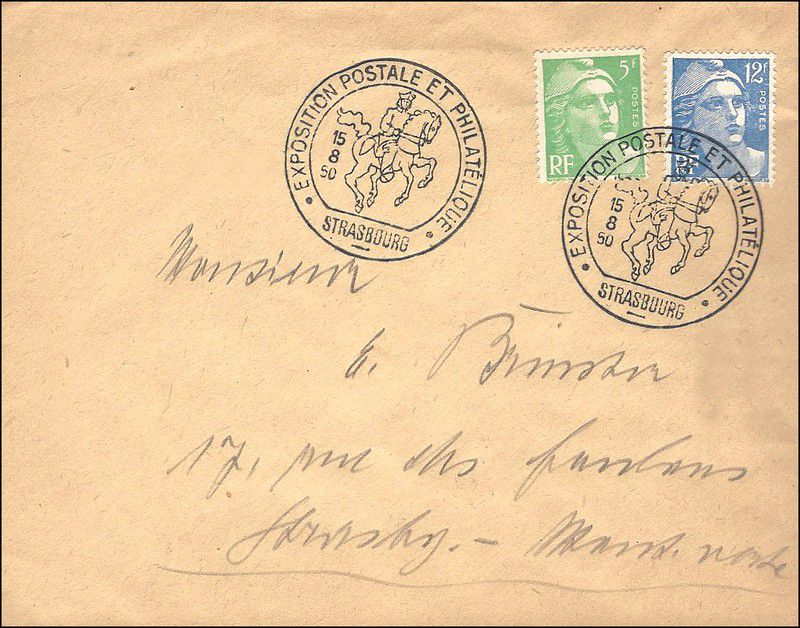 EXPOSITION POSTALE ET PHILATÉLIQUE
15
8
50
STRASBOURG
5F
POSTES
RF
12F
POSTES
RF
EXPOSITION POSTALE ET PHILATÉLIQUE
15
8
50
STRASBOURG
Monsieur
E.
17, rue des
Strasbg. –